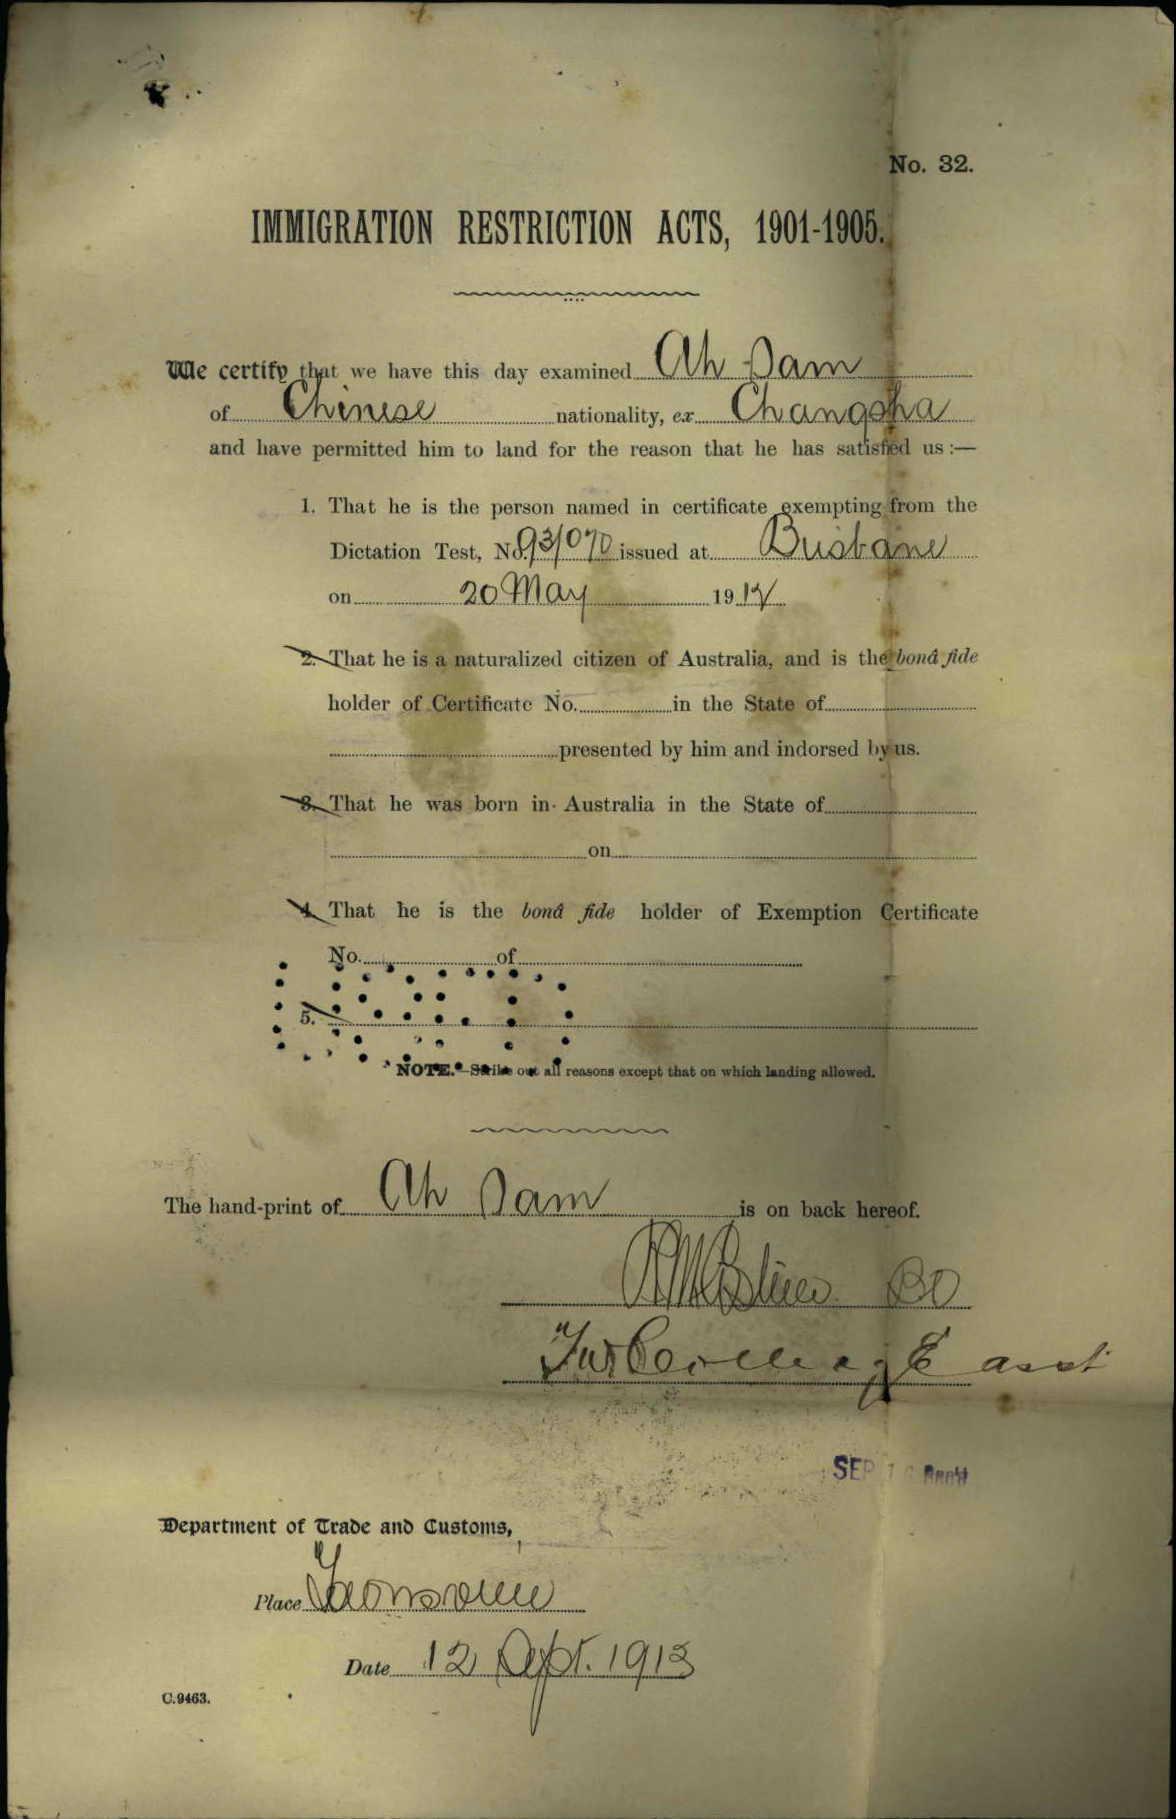 No. 32.
IMMIGRATION RESTRICTION ACTS, 1901-1905.
We certify that we have this day examined Ah Sam
of Chinese nationality, ex Changsha
and have permitted him to land for the reason that he has satisfied us :—
1. That he is the person named in certificate exempting from the
Dictation Test, No. 93/070 issued at Brisbane
on 20 May 1912
2. That he is a naturalized citizen of Australia, and is the bonâ fide
holder of Certificate No. in the State of
presented by him and indorsed by us.
3. That he was born in Australia in the State of
on
4. That he is the bonâ fide holder of Exemption Certificate
No. of
5.
NOTE.—Strike out all reasons except that on which landing allowed.
The hand-print of Ah Sam is on back hereof.
asst
SEP
Department of Trade and Customs,
Place Townsville
Date 12 Sept. 1913
C.9463.